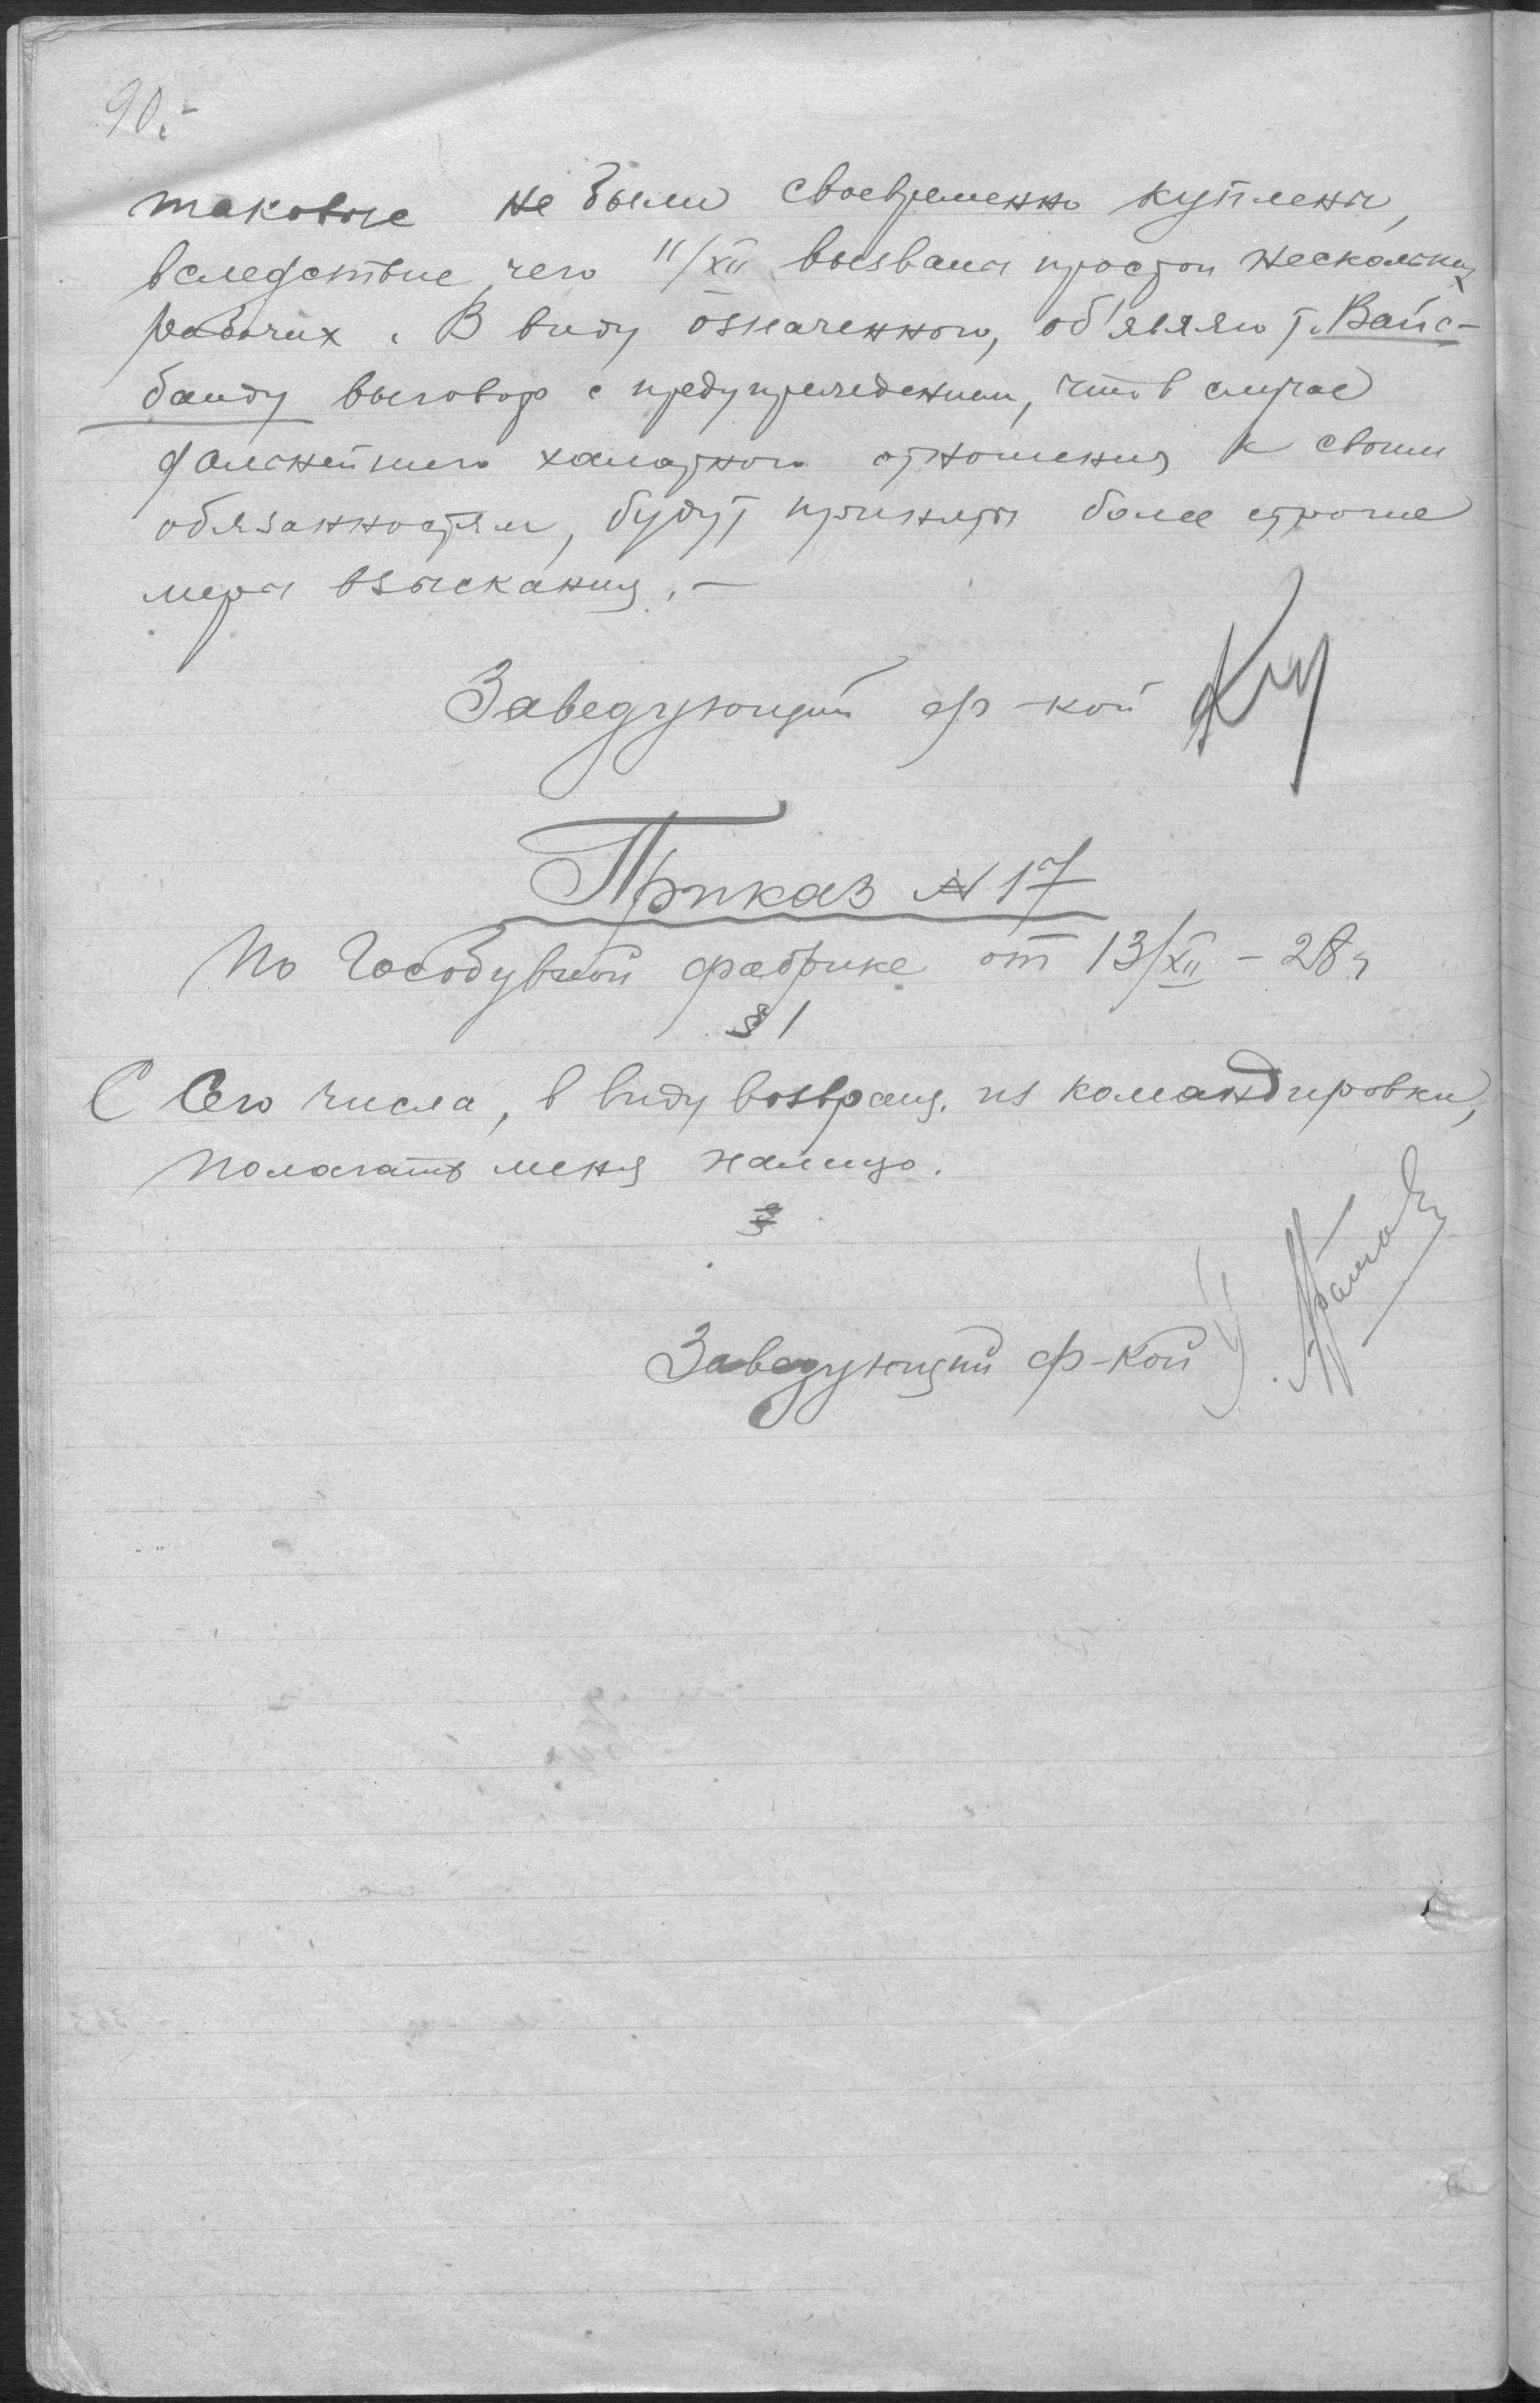 90.-
таковые не были своевременно куплены,
вследствие чего 11/XII вызваны простои нескольких
рабочих. В виду означенного, об'являю т. Вайс-
банду выговор с предупреждением, что в случае
дальнейшего халатного отношения к своим
обязанностям, будут приняты более строгие
меры взыскания. -
Заведующий ф-кой
Приказ N 17
По Гособувной фабрике от 13/XII - 28 г
§ 1
С Сего числа, в виду возвращ. из командировки,
полагать меня налицо.
§
Заведующий ф-кой